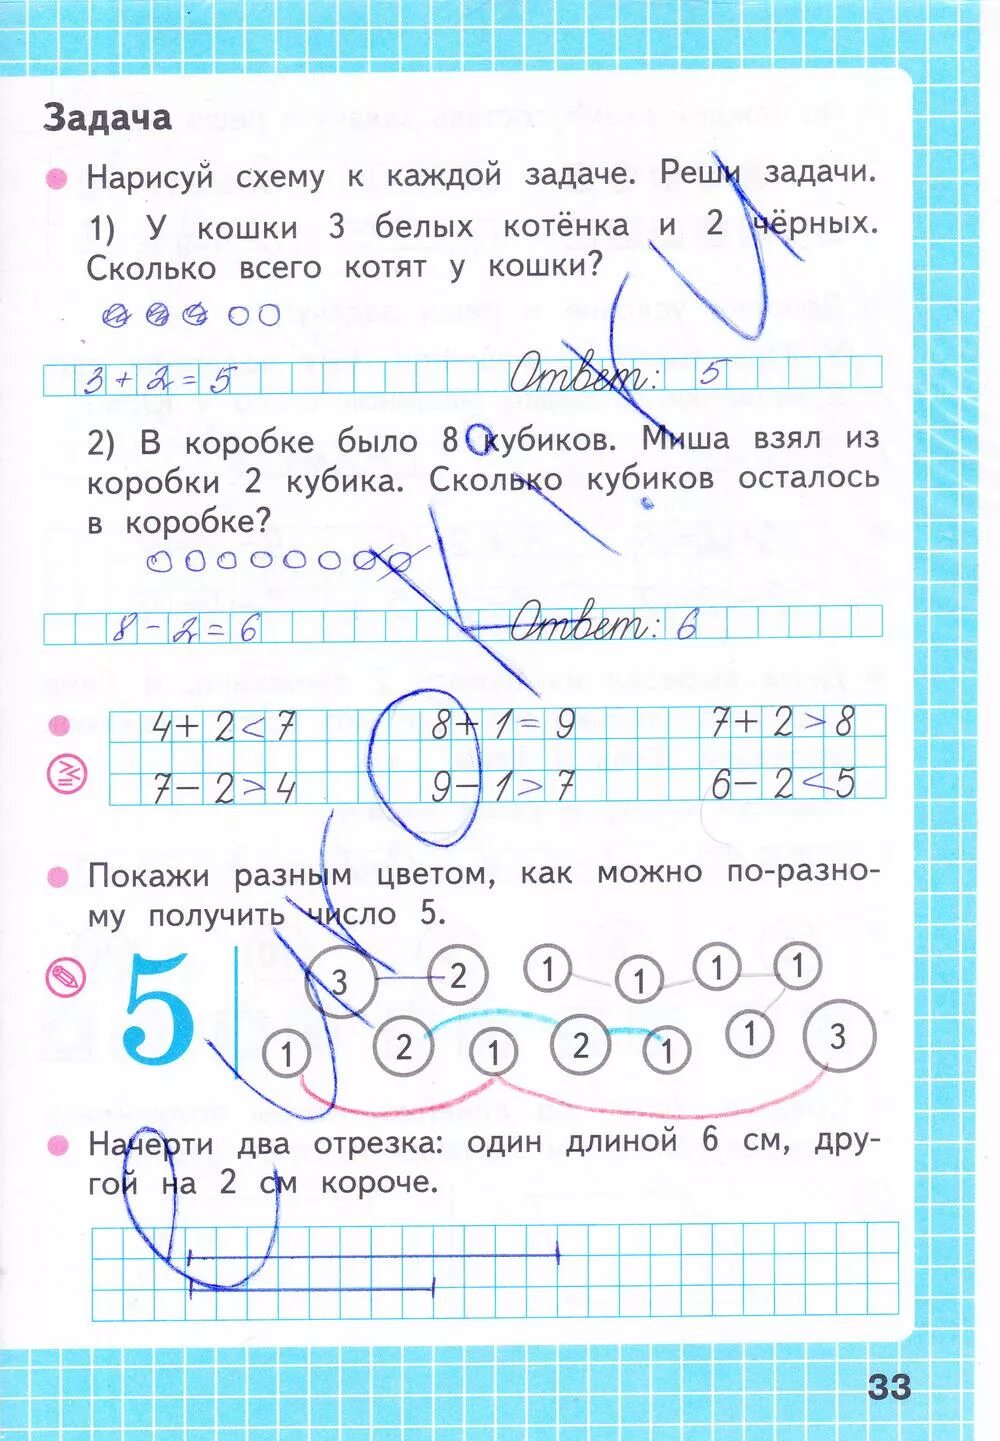 Задача
Нарисуй схему к каждой задаче. Реши задачи.
1) У кошки 3 белых котёнка и 2 чёрных.
Сколько всего котят у кошки?
3 + 2 = 5 Ответ: 5
2) В коробке было 8 кубиков. Миша взял из
коробки 2 кубика. Сколько кубиков осталось
в коробке?
8 - 2 = 6 Ответ: 6
4 + 2 < 7 8 + 1 = 9 7 + 2 > 8
7 - 2 > 4 9 - 1 > 7 6 - 2 < 5
Покажи разным цветом, как можно по-разно-
му получить число 5.
5 3 2 1 1 1 1
1 2 1 2 1 1 3
Начерти два отрезка: один длиной 6 см, дру-
гой на 2 см короче.
33